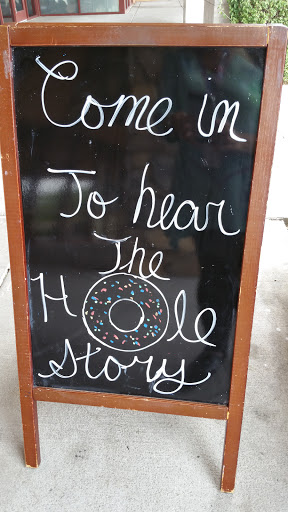 Come in
To hear
The
Hole
Story